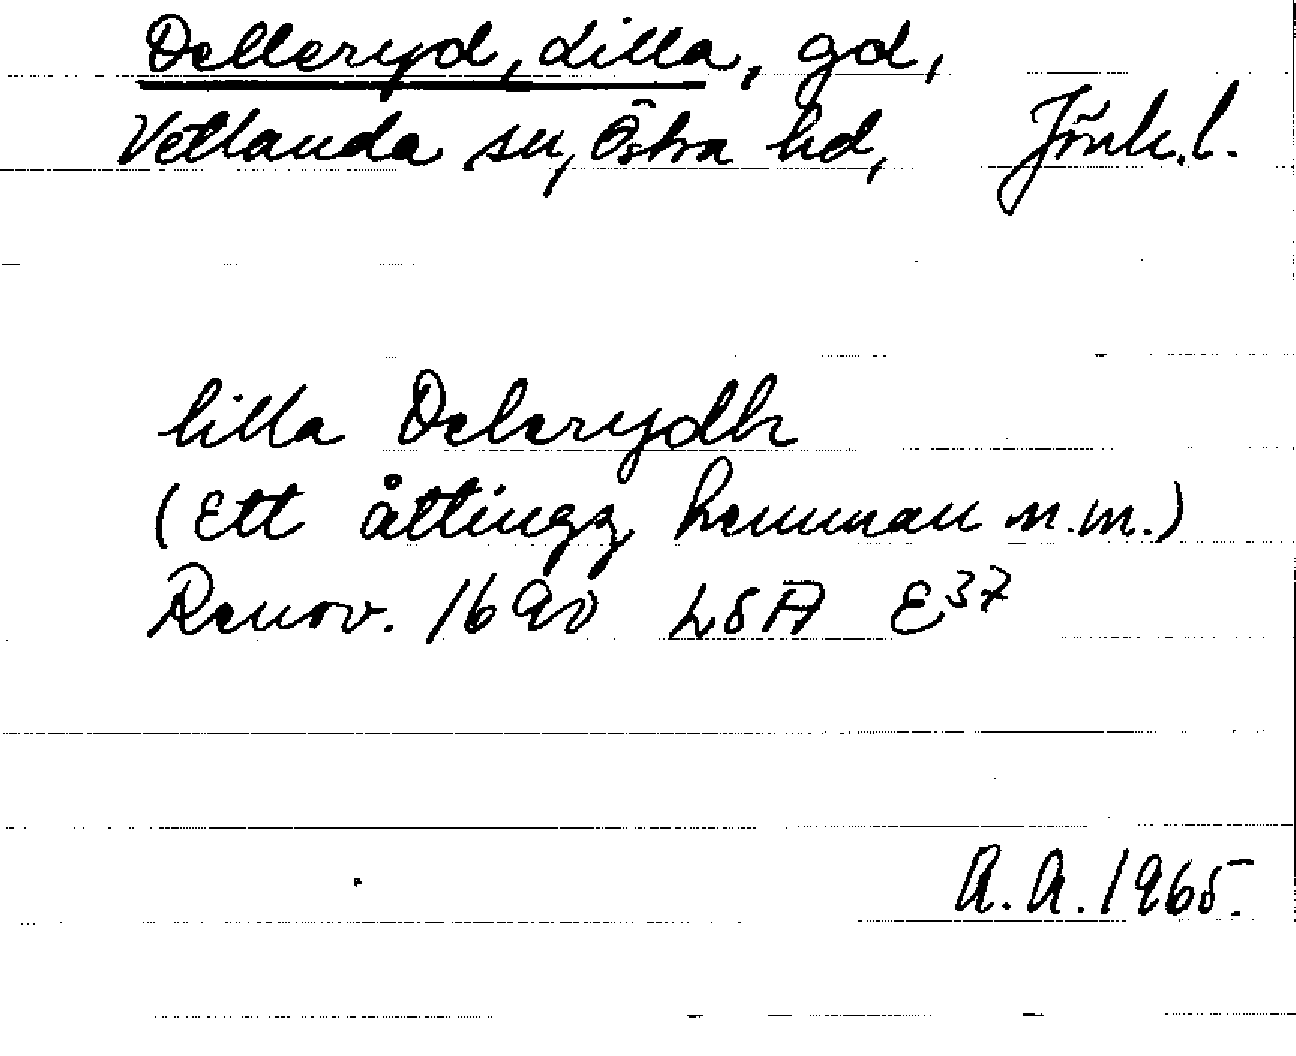 Delleryd, Lilla, gd,
Vetlanda sn, Östra hd, Jönk.l.
lilla Delerydh
(Ett åttingz hemman m.m.)
Renov. 1690 LSA E37
A.A. 1965.